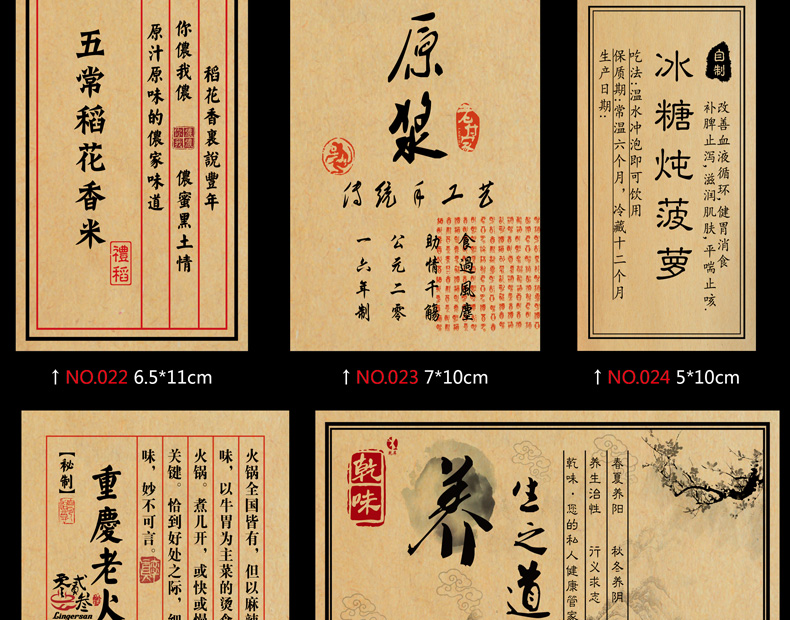 稻花香裏說豐年
你儂我儂 儂蜜黑土情
原汁原味的儂家味道
五常稻花香米
禮稻
↑ NO.022 6.5*11cm
原漿
傳統手工艺
食過風塵
助情千觴
公元二零
一六年制
↑ NO.023 7*10cm
自制
改善血液循环,健胃消食
补脾止泻,滋润肌肤,平喘止咳.
冰糖炖菠萝
吃法:温水冲泡即可饮用
保质期:常温六个月，冷藏十二个月
生产日期:
↑ NO.024 5*10cm
火锅全国皆有，但以麻辣
味，以牛胃为主菜的烫食
火锅。煮几开，或快或慢
关键。恰到好处之际，细
味，妙不可言。
重慶老火
【秘制】
零贰叁
Lingersan
春夏养阳 秋冬养阴
养生治性 行义求志
乾味·您的私人健康管家
养生之道
乾味